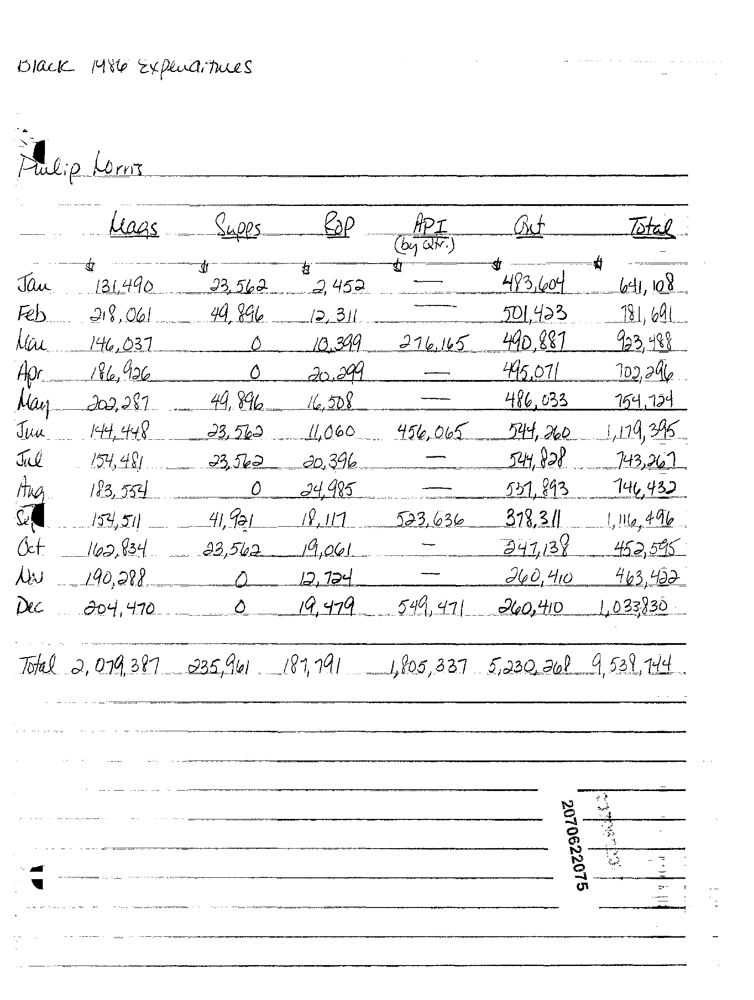 Black 1986 Expenditures
Philip Morris
Mags Supps ROP API Out Total
(by Qtr.)
$ $ $ $ $ $
Jan 131,490 23,562 2,452 — 483,604 641,108
Feb 218,061 49,896 12,311 — 501,423 781,691
Mar 146,037 0 10,399 276,165 490,887 923,488
Apr 186,926 0 20,299 — 495,071 702,296
May 202,287 49,896 16,508 — 486,033 754,724
Jun 144,448 23,562 11,060 456,065 544,260 1,179,395
Jul 154,481 23,562 20,396 — 544,828 743,267
Aug 183,554 0 24,985 — 537,893 746,432
Sep 154,511 41,921 18,117 523,636 378,311 1,116,496
Oct 162,834 23,562 19,061 — 247,138 452,595
Nov 190,288 0 12,724 — 260,410 463,422
Dec 204,470 0 19,479 549,471 260,410 1,033,830
Total 2,079,387 235,961 187,791 1,805,337 5,230,268 9,538,744
2070622075